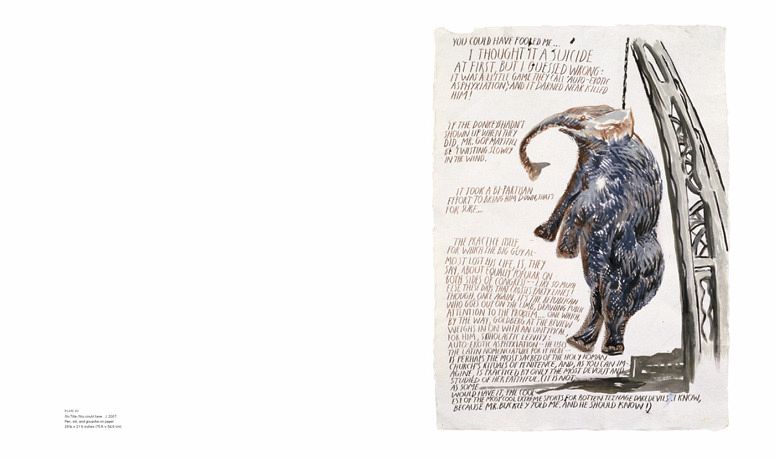 YOU COULD HAVE FOOLED ME...
I THOUGHT IT A SUICIDE
AT FIRST, BUT I GUESSED WRONG:
IT WAS A LITTLE GAME THEY CALL AUTO-EROTIC
ASPHYXIATION, AND IT DARNED NEAR KILLED
HIM!
IF THE DONKEYS HADN'T
SHOWN UP WHEN THEY
DID, MR. GOP MAY STILL
BE TWISTING SLOWLY
IN THE WIND.
IT TOOK A BI-PARTISAN
EFFORT TO BRING HIM DOWN, THAT'S
FOR SURE...
THE PRACTICE ITSELF
FOR WHICH THE BIG GUY AL-
MOST LOST HIS LIFE, IS, THEY
SAY, ABOUT EQUALLY POPULAR ON
BOTH SIDES OF CONGRESS - LIKE SO MUCH
ELSE THESE DAYS THAT CROSSES PARTY LINES!
THOUGH, ONCE AGAIN, IT'S THE REPUBLICAN
WHO GOES OUT ON THE LIMB, DRAWING PUBLIC
ATTENTION TO THE PROBLEM... ONE WHICH,
BY THE WAY, GOLDBERG AT THE REVIEW
WEIGHS IN ON WITH AN UNTYPICAL,
FOR HIM, SCHOLASTIC LENITY:
AUTO-EROTIC ASPHYXIATION - HE USES
THE LATIN NOMENCLATURE FOR IT HERE -
IS PERHAPS THE MOST SACRED OF THE HOLY ROMAN
CHURCH'S RITUALS OF PENITENCE, AND, AS YOU CAN IM-
AGINE, IS PRACTICED BY ONLY THE MOST DEVOUT AND
STUDIED OF HER FAITHFUL. (IT IS NOT,
AS SOME
WOULD HAVE IT, THE COOL-
EST OF THE MOST COOL EXTREME SPORTS FOR ROTTEN TEENAGE DAREDEVILS. I KNOW,
BECAUSE MR. BUCKLEY TOLD ME, AND HE SHOULD KNOW!)
No Title (You could have...), 2007
Pen, ink, and gouache on paper